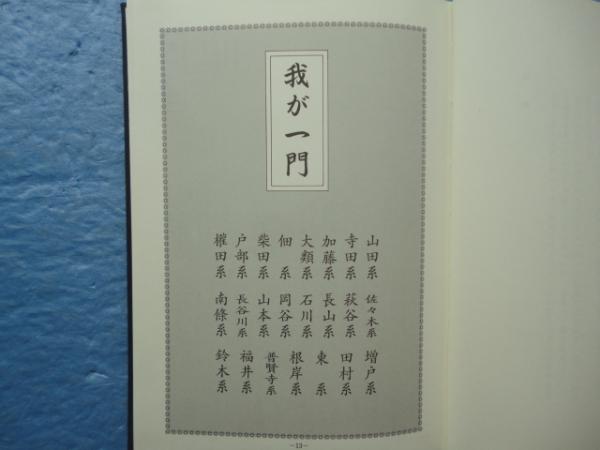 我が一門
山田系
寺田系
加藤系
大類系
佃系
柴田系
戸部系
権田系
佐々木系
萩谷系
長山系
石川系
岡谷系
山本系
長谷川系
南條系
増戸系
田村系
東系
根岸系
普賢寺系
福井系
鈴木系
－13－